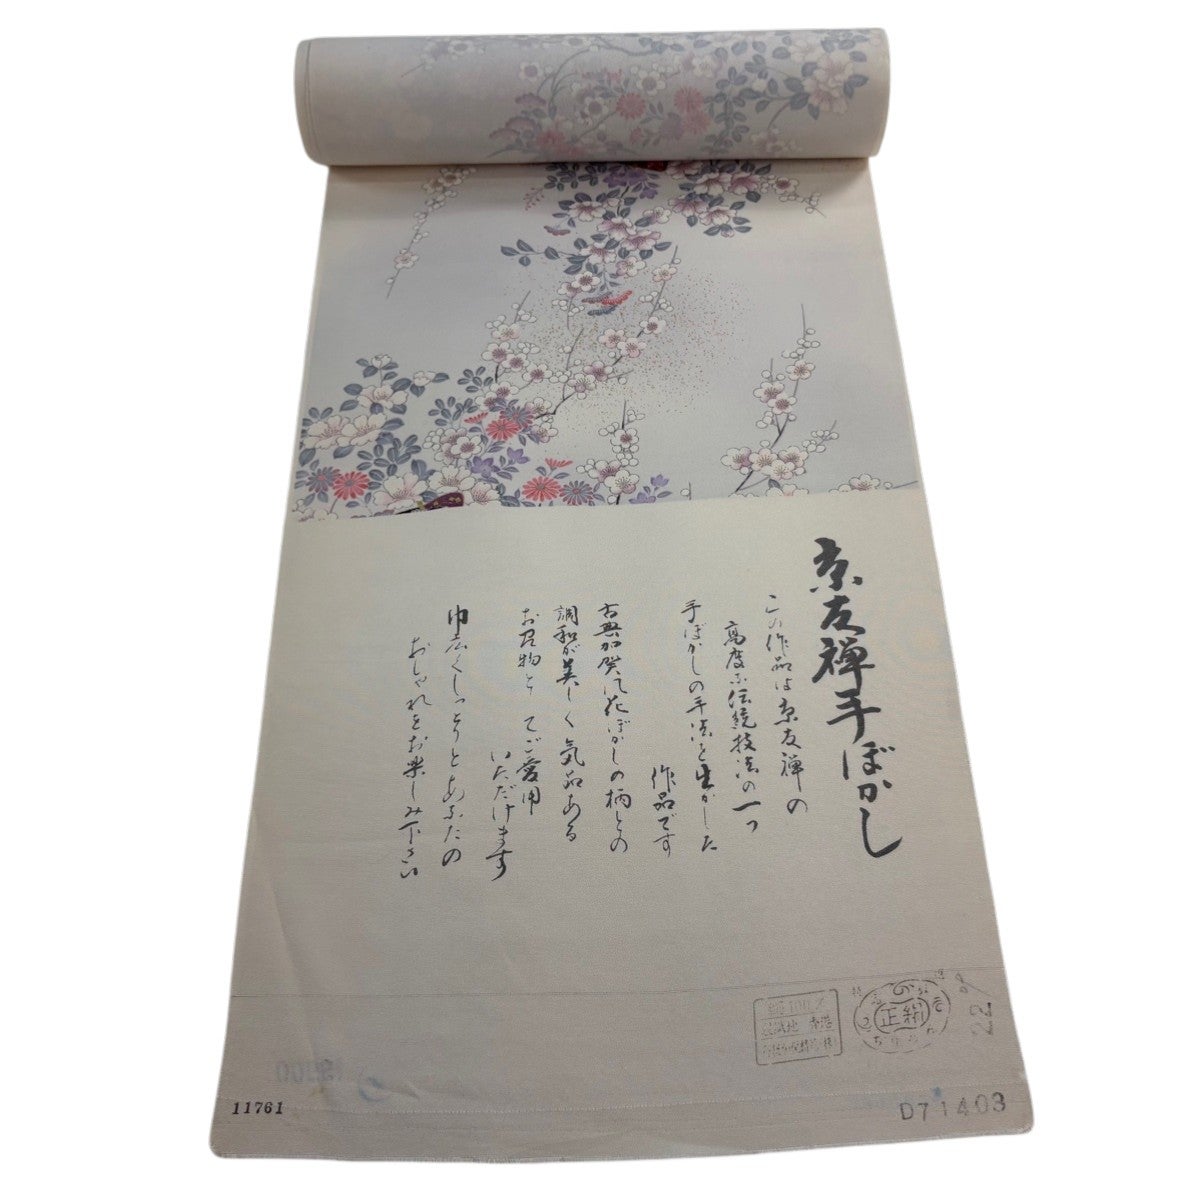 京友禅手ぼかし
この作品は京友禅の
高度な伝統技法の一つ
手ぼかしの手法を生かした
作品です
花ぼかしの柄との
調和が美しく気品ある
お召物としてご愛用
いただけます
巾広くしっとりとあなたの
おしゃれをお楽しみ下さい
正絹
22
11761
D71403